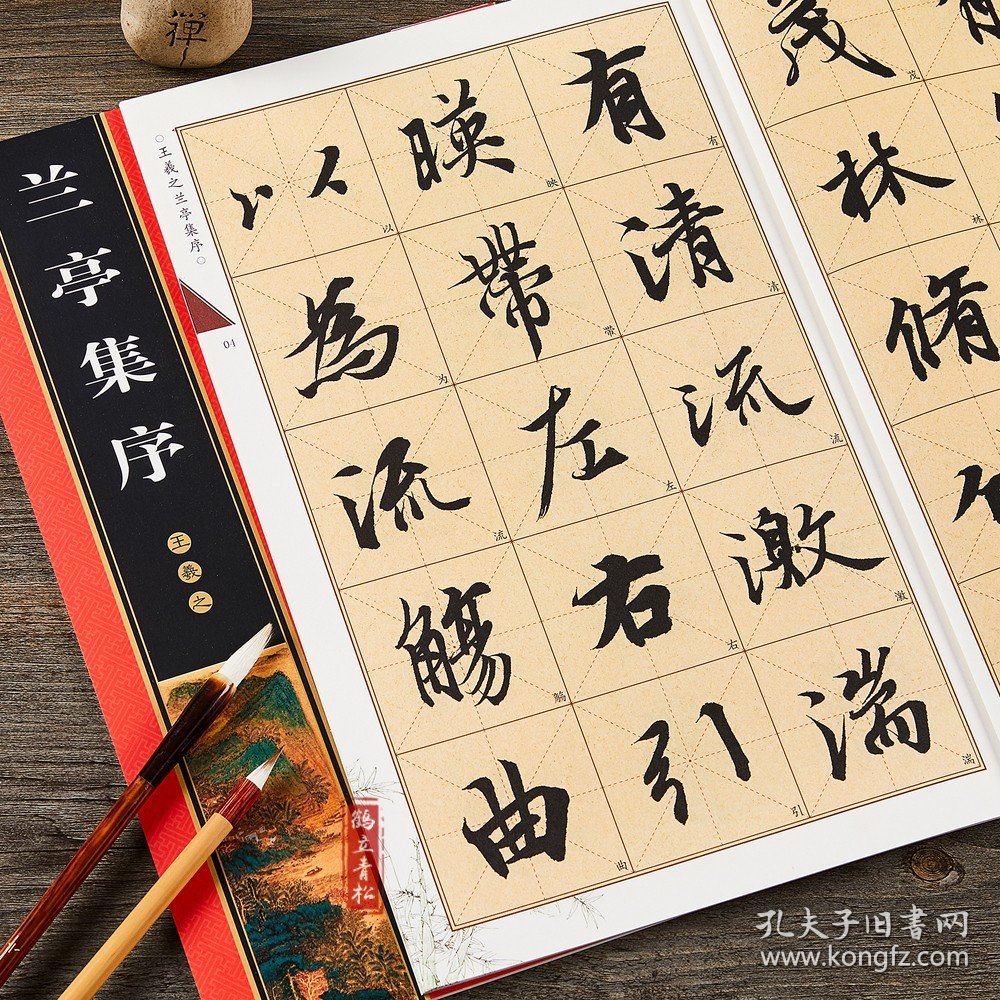 禅
兰亭集序
王羲之
王羲之兰亭集序
04
有清流激湍
映带左右引
以为流觞曲
有 清 流 激 湍
暎 帶 左 右 引
以 為 流 觴 曲
茂
林
脩
林
鹤立青松
孔夫子旧书网
www.kongfz.com